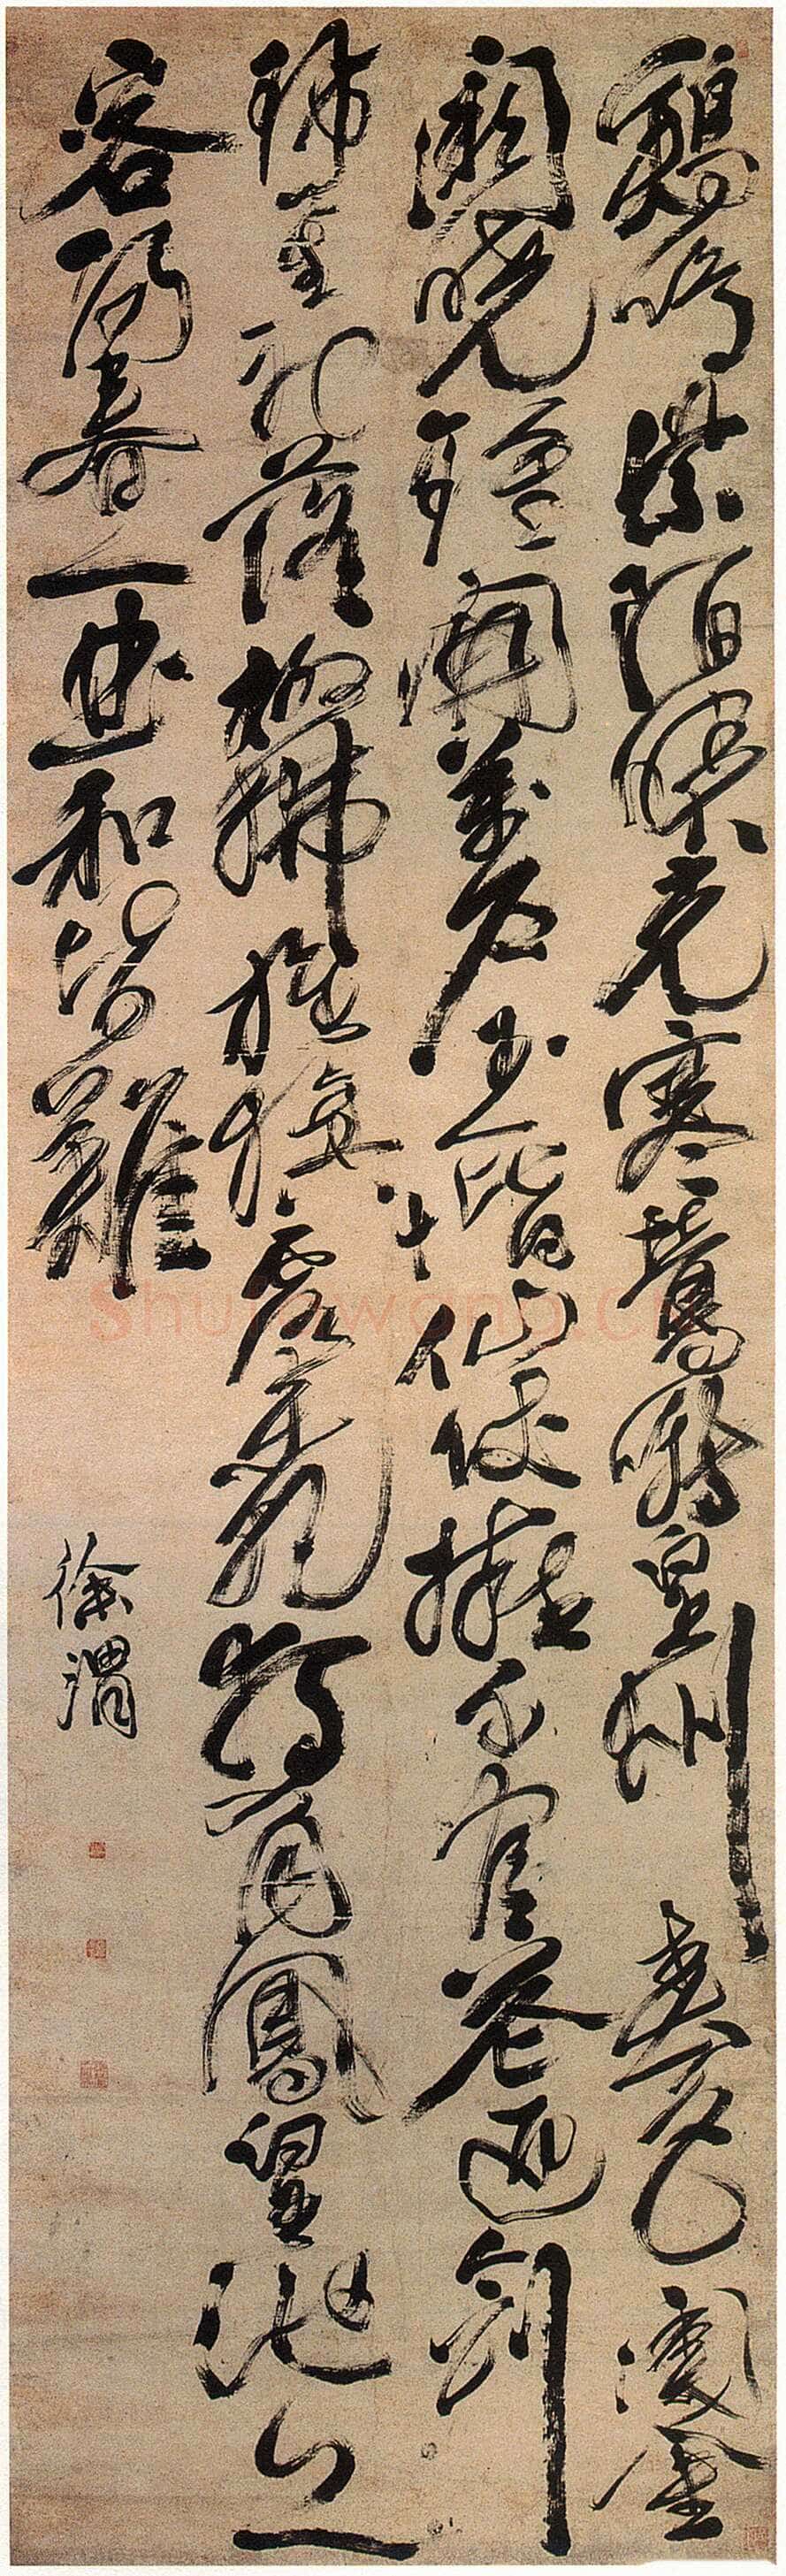 鷄鳴紫陌曙光寒鶯囀皇州春色闌金
闕曉鐘開萬戶玉階仙仗擁千官花迎劍
珮星初落柳拂旌旗露未乾獨有鳳凰池上
客陽春一曲和皆難
徐渭